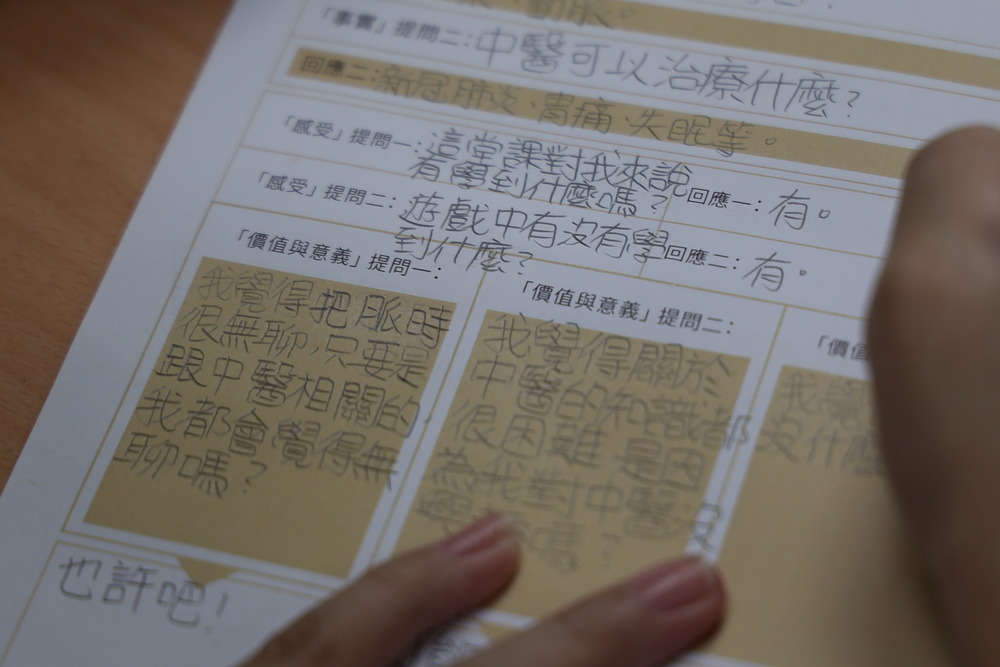 動脈。
「事實」提問二：中醫可以治療什麼？
回應二：新冠肺炎、胃痛、失眠等。
「感受」提問一：這堂課對我來說
有學到什麼嗎？
回應一：有。
「感受」提問二：遊戲中有沒有學
到什麼？
回應二：有。
「價值與意義」提問一：
我覺得把脈時
很無聊，只要是
跟中醫相關的，
我都會覺得無
聊嗎？
也許吧！
「價值與意義」提問二：
我覺得關於
中醫的知識都
很困難，是因
為我對中醫沒
嗎？
「價值
我覺
沒什麼